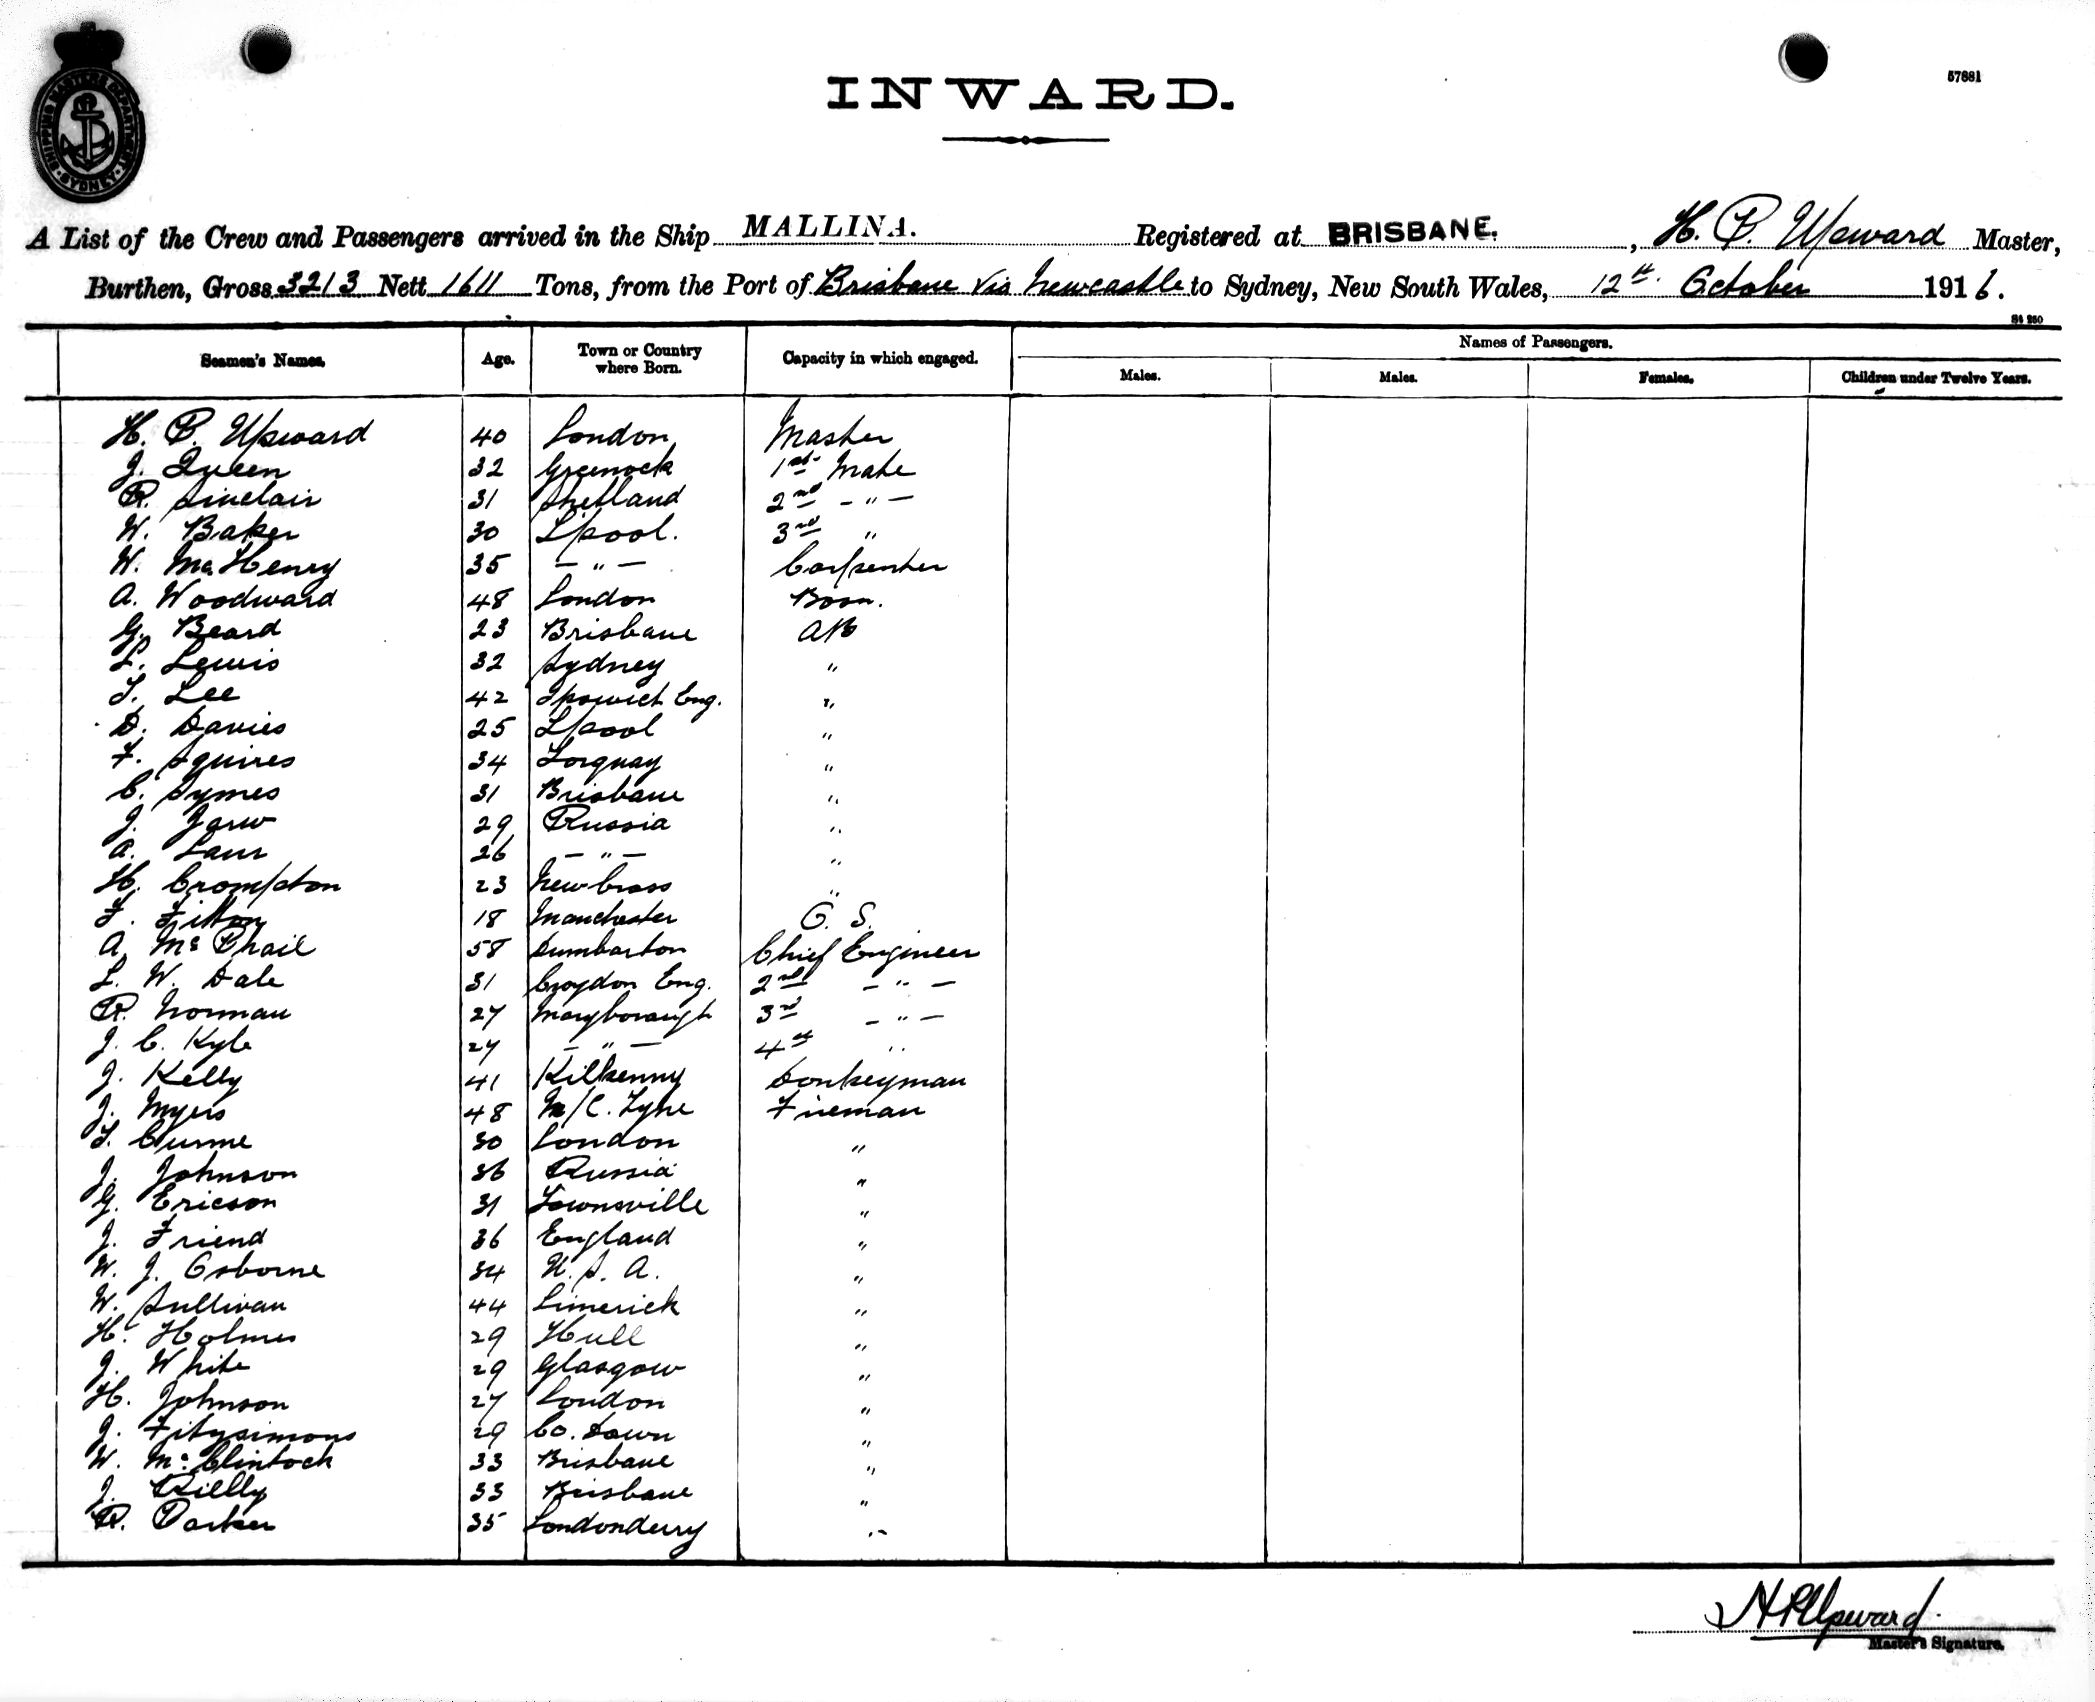 SHIPPING MASTERS DEPARTMENT SYDNEY
57881
INWARD.
A List of the Crew and Passengers arrived in the Ship MALLINA. Registered at BRISBANE, H. P. Upward Master,
Burthen, Gross 3213 Nett 1611 Tons, from the Port of Brisbane via Newcastle to Sydney, New South Wales, 12th October 1916.
St 250
Seamen's Names. Age. Town or Country where Born. Capacity in which engaged. Names of Passengers.
Males. Males. Females. Children under Twelve Years.
H. P. Upward 40 London Master
J. Queen 32 Greenock 1st Mate
R. Sinclair 31 Shetland 2nd - " -
W. Baker 30 L'pool. 3rd "
W. McHenry 35 - " - Carpenter
A. Woodward 48 London Bosn.
G. Beard 23 Brisbane AB
L. Lewis 32 Sydney "
T. Lee 42 Ipswich Eng. "
D. Davies 25 L'pool "
F. Squires 34 Torquay "
C. Symes 31 Brisbane "
J. Jarw 29 Russia "
A. Laur 26 - " - "
H. Crompton 23 New Cross "
F. Fitton 18 Manchester O. S.
A. McPhail 58 Dumbarton Chief Engineer
L. W. Dale 31 Croydon Eng. 2nd - " -
R. Norman 27 Maryborough 3rd - " -
J. C. Kyle 27 - " - 4th "
J. Kelly 41 Kilkenny Donkeyman
J. Myers 48 N/C. Tyne Fireman
T. Curme 30 London "
J. Johnson 36 Russia "
G. Ericson 31 Townsville "
J. Friend 36 England "
W. J. Osborne 34 U. S. A. "
W. Sullivan 44 Limerick "
H. Holmes 29 Hull "
J. White 29 Glasgow "
H. Johnson 27 London "
J. Fitzsimons 29 Co. Down "
W. McClintock 33 Brisbane "
J. Rielly 33 Brisbane "
R. Parker 35 Londonderry "
H P Upward.
Master's Signature.